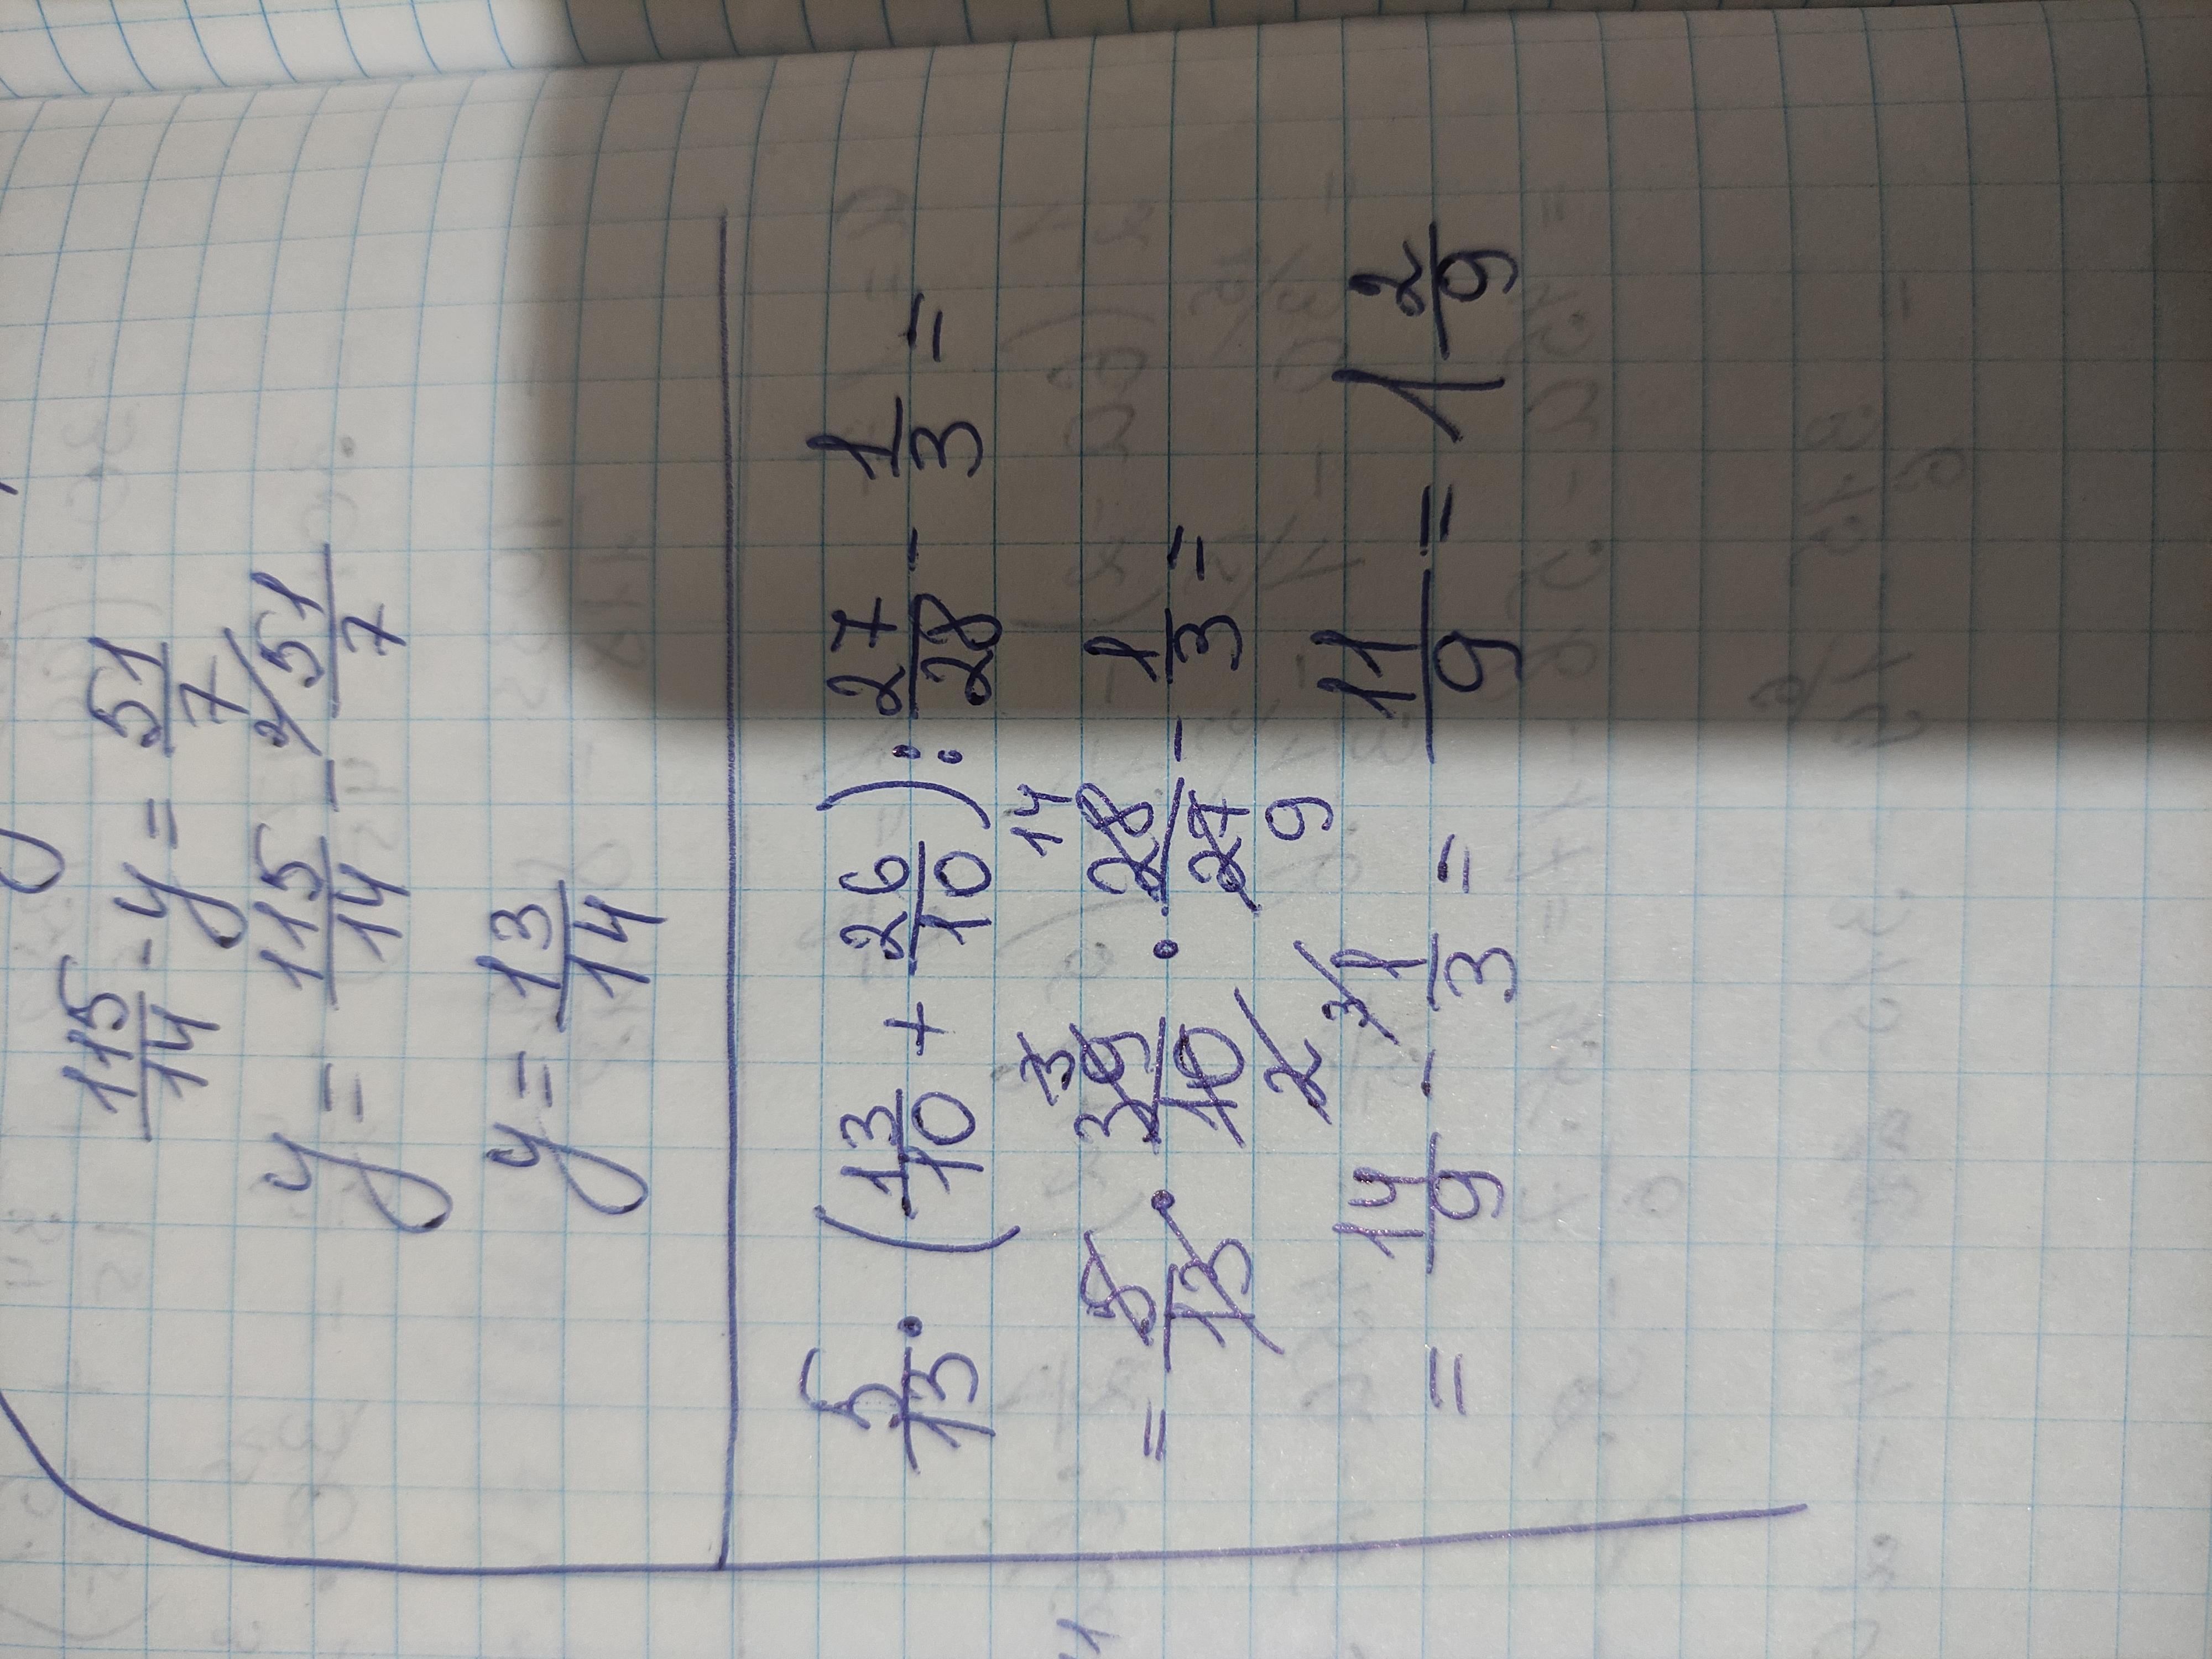 115/14 - y = 51/7
y = 115/14 - 2/ 51/7
y = 13/14
5/13 · (13/10 + 26/10) : 27/28 - 1/3 =
= 5/13 · 39 3/10 2 · 28 14/27 9 - 1/3 =
= 14/9 - 3/ 1/3 = 11/9 = 1 2/9